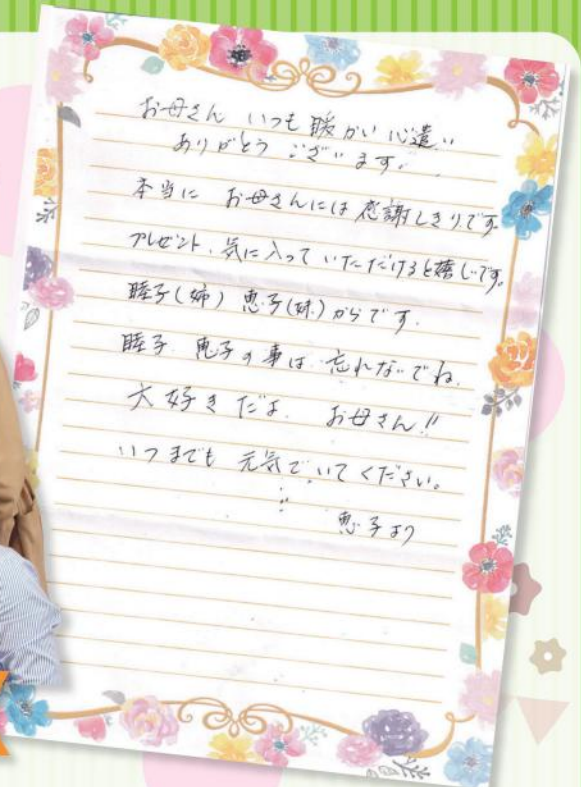 お母さん いつも暖かい心遣い
ありがとうございます。
本当に お母さんには感謝しきりです
プレゼント、気に入っていただけると嬉しいです。
睦子(姉) 恵子(妹)からです.
睦子 恵子の事は 忘れないでね.
大好きだよ. お母さん!!
いつまでも 元気でいてください。
恵子より